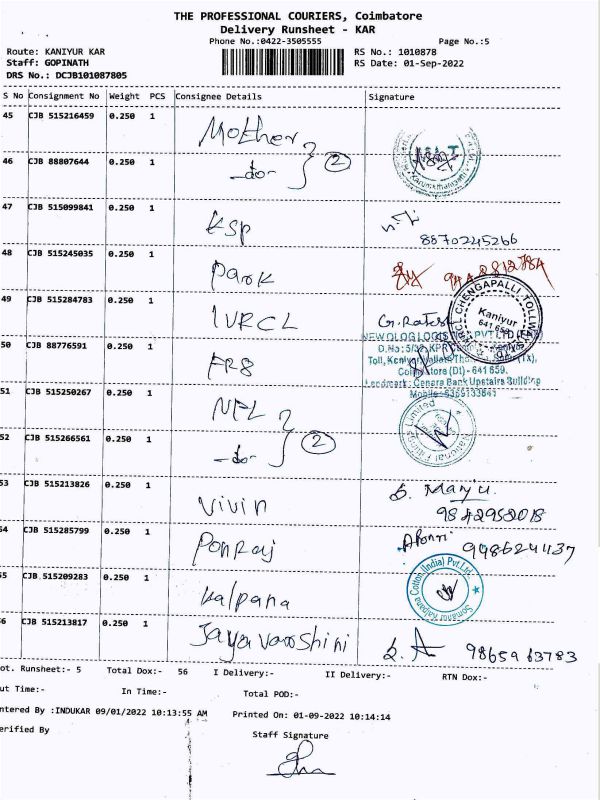 THE PROFESSIONAL COURIERS, Coimbatore
Delivery Runsheet - KAR
Phone No.:0422-3505555 Page No.:5
Route: KANIYUR KAR RS No.: 1010878
Staff: GOPINATH RS Date: 01-Sep-2022
DRS No.: DCJB101087805
S No Consignment No Weight PCS Consignee Details Signature
45 CJB 515216459 0.250 1 Mother
46 CJB 88807644 0.250 1 -do- 2
47 CJB 515099841 0.250 1 KSP
8870245266
48 CJB 515245035 0.250 1 Park
49 CJB 515284783 0.250 1 IVRCL G. Ratesh
CHENGAPALLI TOLLWAY
Kaniyur
641 659
NEWOLOGLOGIS PVT LTD
50 CJB 88776591 0.250 1 FRS
Coimbatore (Dt) - 641 659.
Landmark: Canera Bank Upstairs Building
51 CJB 515250267 0.250 1 NFL
National Limited
52 CJB 515266561 0.250 1 -do- 2
53 CJB 515213826 0.250 1 Vivin S. Manju.
9842952018
54 CJB 515285799 0.250 1 Ponraj
55 CJB 515209283 0.250 1 Kalpana
Kalpana Cotton (India) Pvt Ltd
56 CJB 515213817 0.250 1 Jayavarshini 9865963783
ot. Runsheet:- 5 Total Dox:- 56 I Delivery:- II Delivery:- RTN Dox:-
ut Time:- In Time:- Total POD:-
ntered By :INDUKAR 09/01/2022 10:13:55 AM Printed On: 01-09-2022 10:14:14
erified By Staff Signature